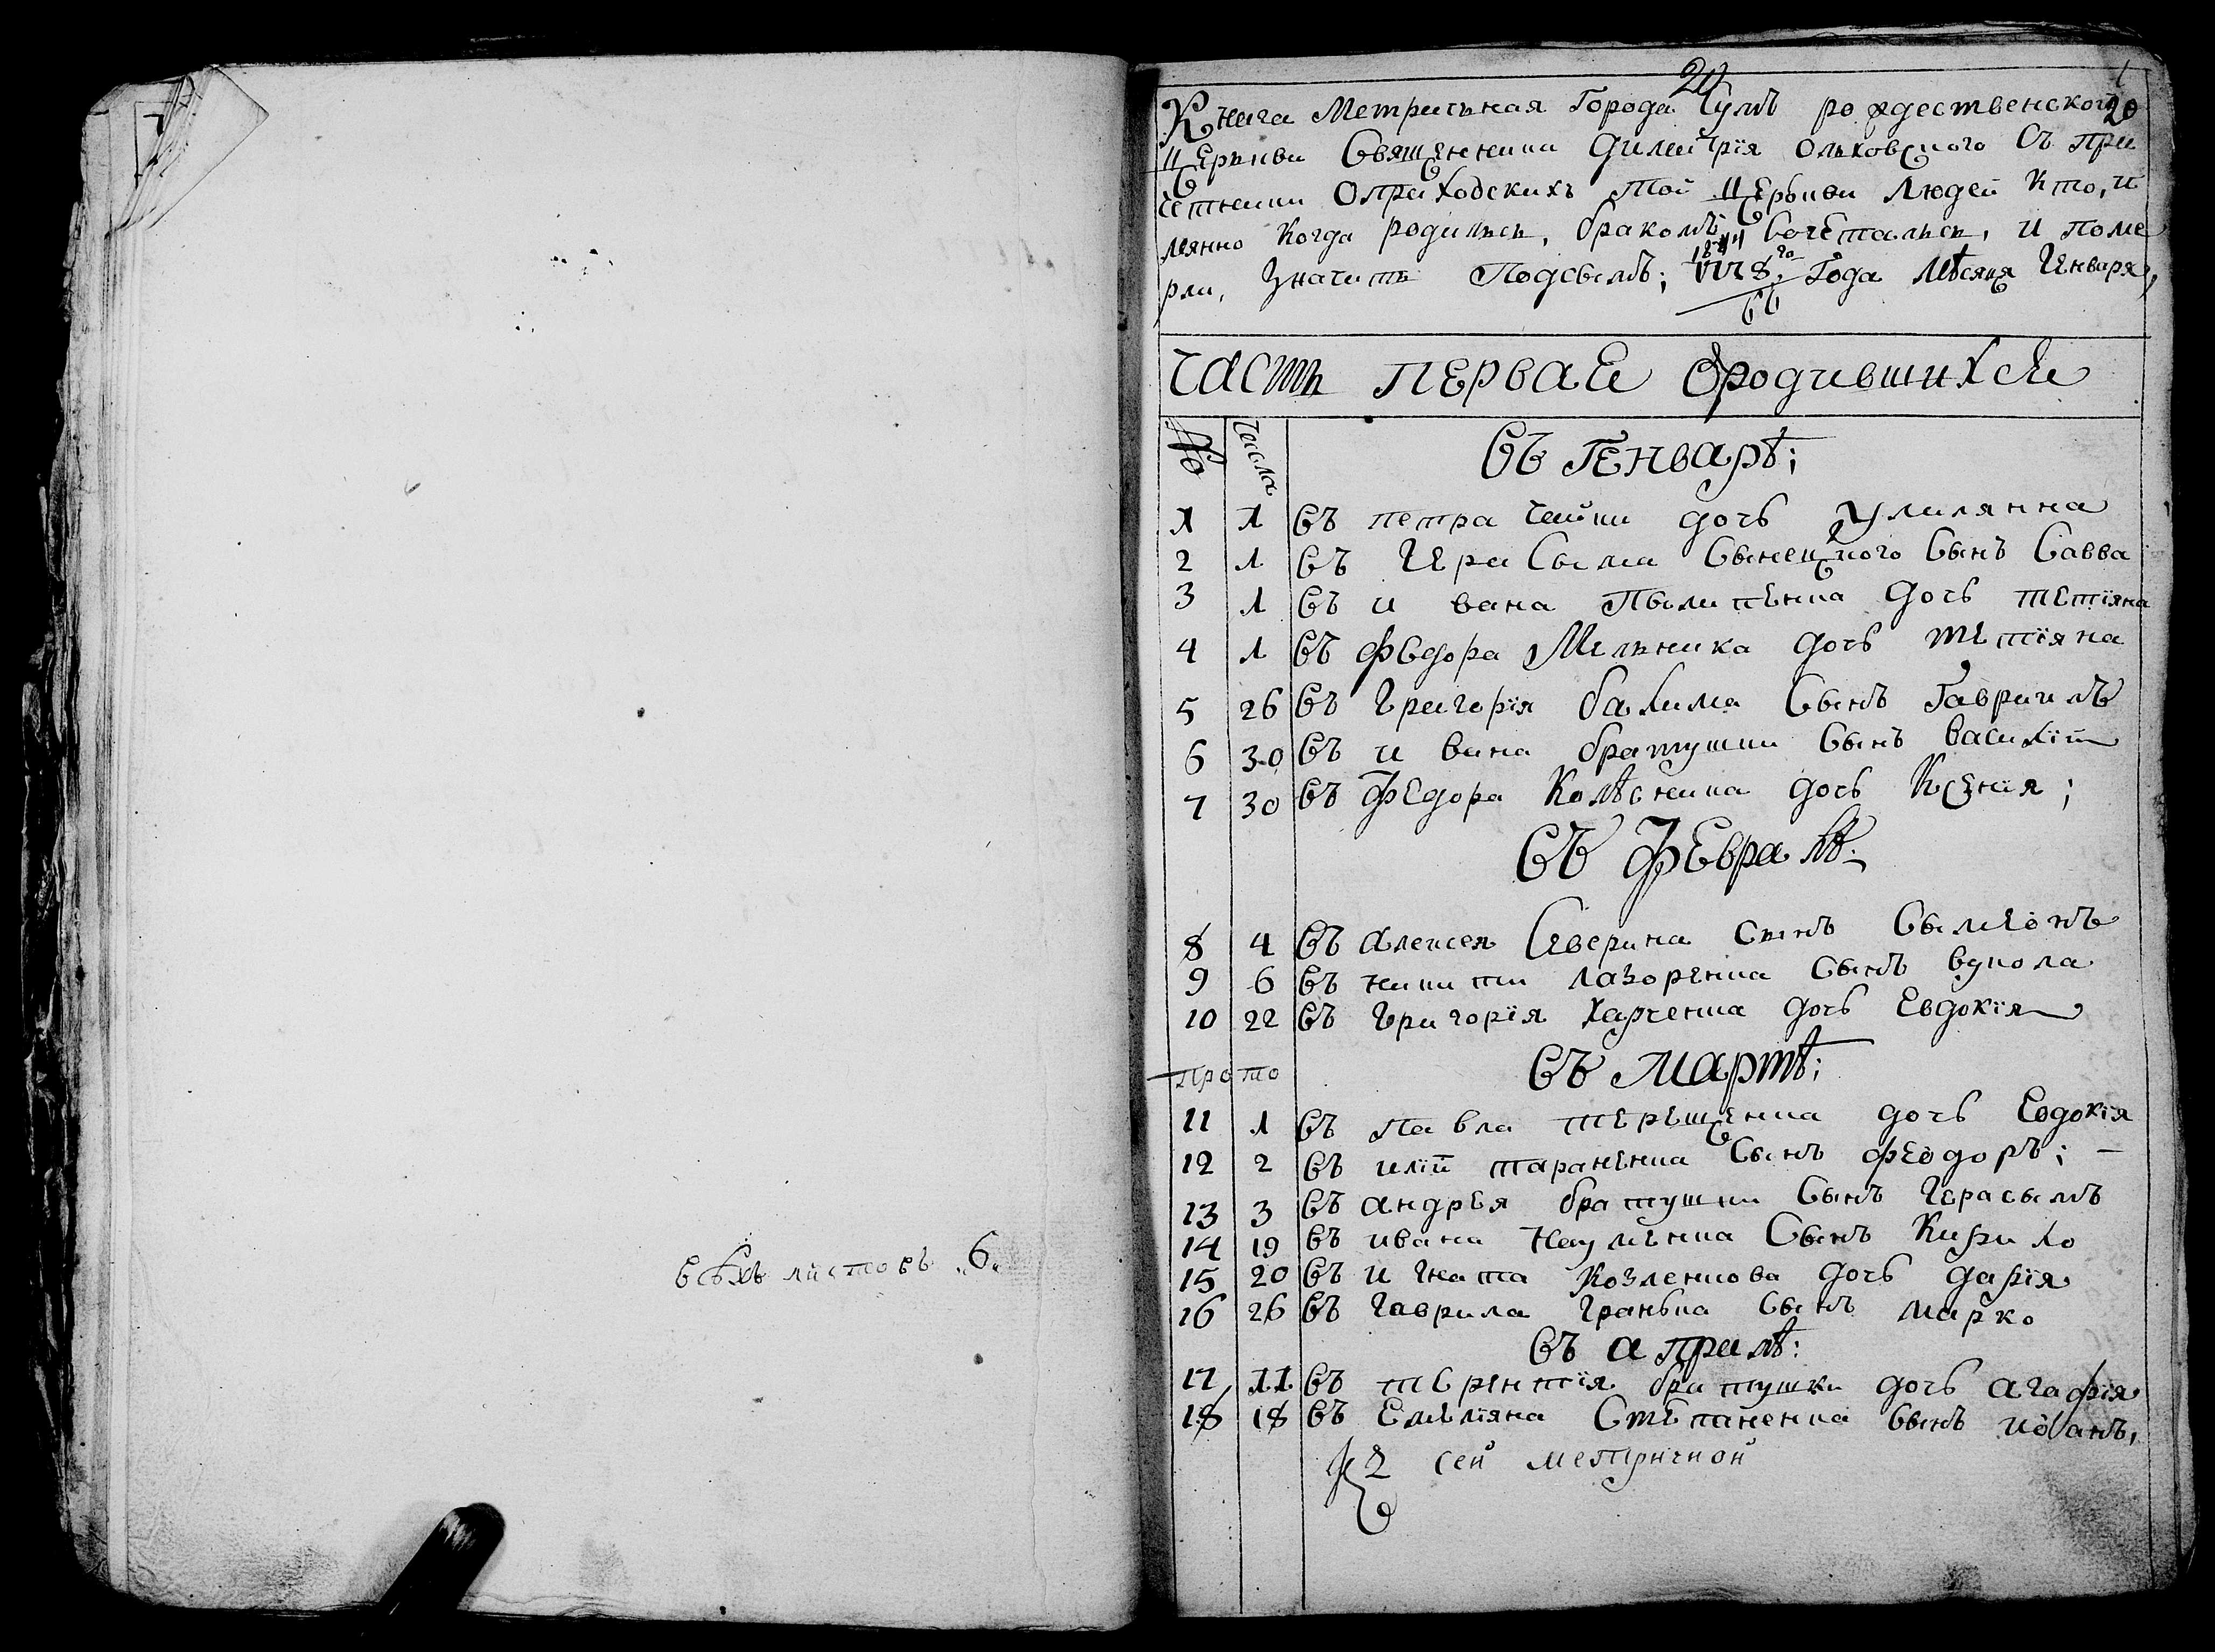 всѣхъ листовъ „6„
20
1
Книга Метрычная Города Сумъ рождественской
20
Церькви Священника Димитрія Ольховского Съ при
четники Оприходскихъ той Церькви людей кто, и
мянно когда родились, бракомъ Сочетались, и поме
рли, Значитъ Подсымъ; 1778 го Года Мѣсяця Генваря,
часть первая Ородившихся
№ Числа
Въ Генварѣ;
1 1 Въ петра чайки дочь Улилянна
2 1 Въ Герасыма Сынецкого Сынъ Савва
3 1 Въ ивана Пылипенка дочь тетіяна
4 1 Въ Федора Мельника дочь тетіяна
5 26 Въ Григорія бахима Сынъ Гавриилъ
6 30 Въ ивана братушки Сынъ василій
7 30 Въ Федора Колѣсника дочь Ксенія;
Въ Февралѣ.
8 4 Въ алексея Северина Сынъ Сымеонъ
9 6 Въ никити лазоренка Сынъ вукола
10 22 Въ Григорія харченка дочь Евдокія
прото
Въ мартѣ;
11 1 Въ павла терещенка дочь Евдокія
12 2 Въ илій тараненка Сынъ феодоръ;
13 3 Въ андрея братушки Сынъ Герасымъ
14 19 Въ ивана Науменка Сынъ Кирило
15 20 Въ игната Козленкова дочь дарія
16 26 Въ гаврила Гранька Сынъ марко
Въ априлѣ:
17 11 Въ терентія братушки дочь агафія
18 18 Въ Емеліяна Степаненка Сынъ иоанъ,
Къ сей метричной